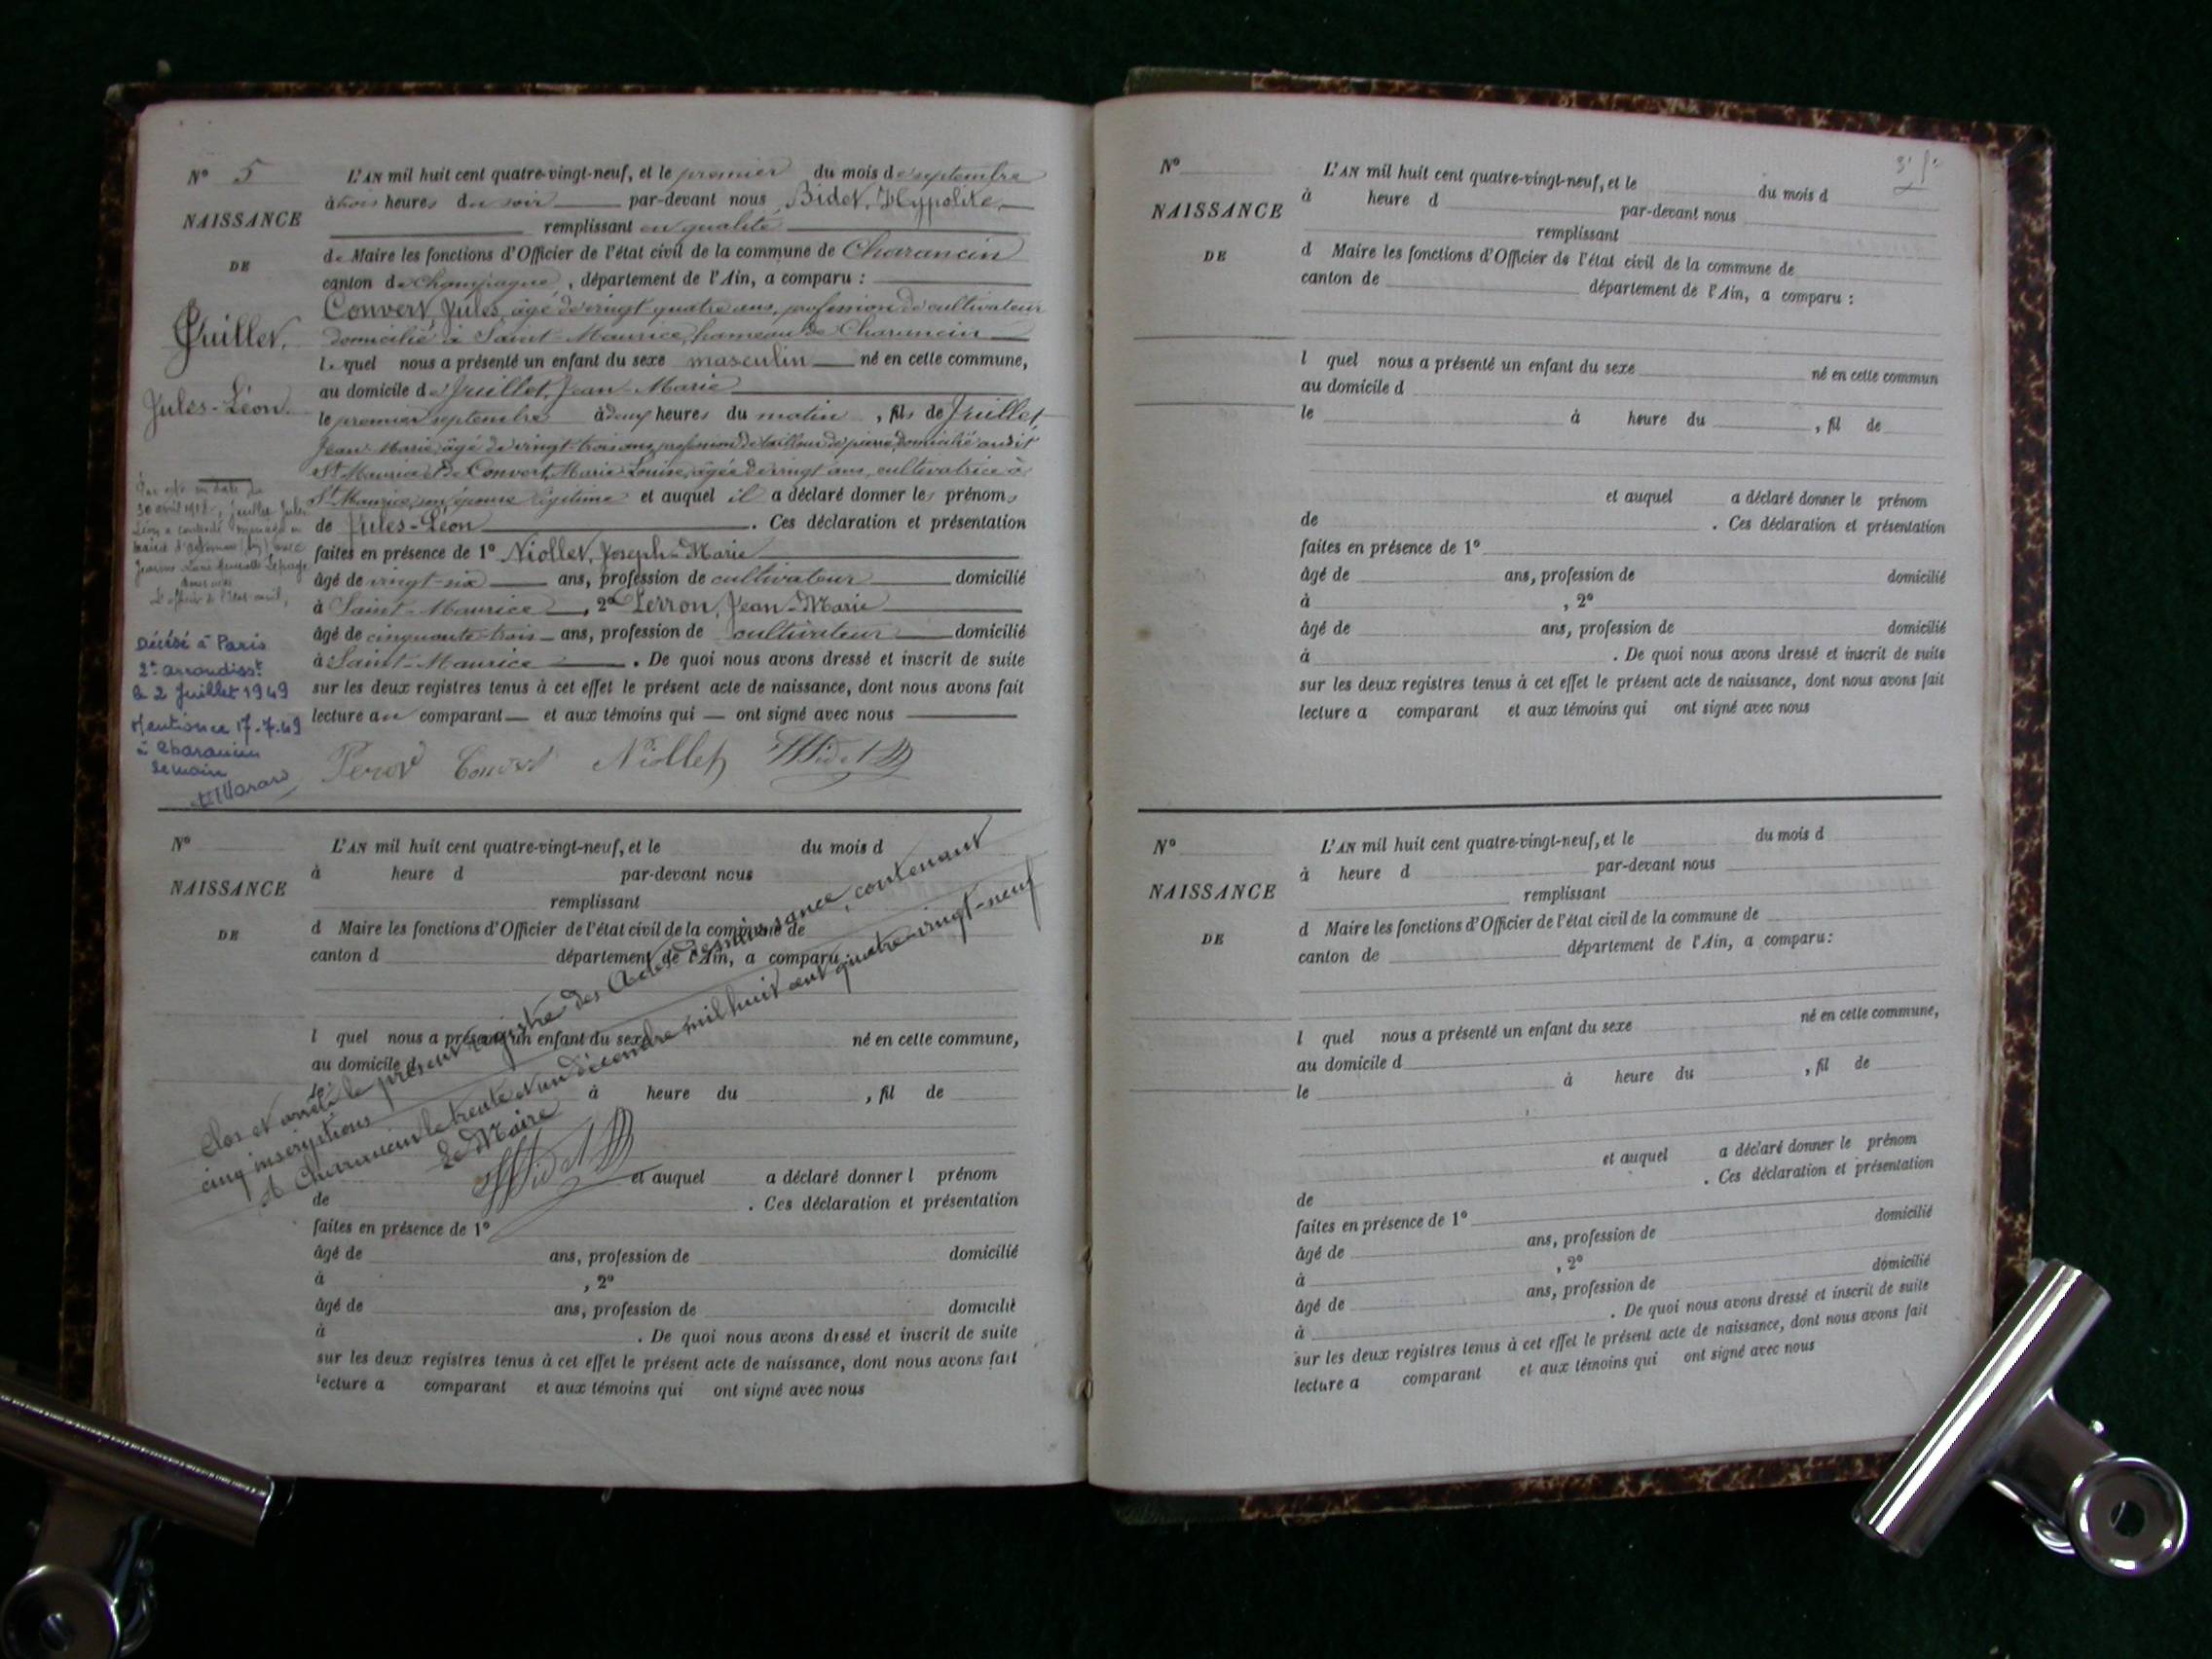 N° 5
NAISSANCE
DE
Juillet,
Jules-Léon.
L'AN mil huit cent quatre-vingt-neuf, et le premier du mois de septembre
à trois heures du soir par-devant nous Bidet, Hypolite,
remplissant en qualité
de Maire les fonctions d'Officier de l'état civil de la commune de Charancin
canton de Champagne, département de l'Ain, a comparu :
Convert, Jules, âgé de vingt quatre ans, profession de cultivateur
domicilié à Saint-Maurice, hameau de Charancin
lequel nous a présenté un enfant du sexe masculin né en cette commune,
au domicile de Juillet, Jean-Marie
le premier septembre à deux heures du matin, fils de Juillet,
Jean-Marie, âgé de vingt-trois ans, profession de tailleur de pierre, domicilié audit
St Maurice et de Convert, Marie-Louise, âgée de vingt ans, cultivatrice à
St Maurice, son épouse légitime et auquel il a déclaré donner les prénoms
de Jules-Léon. Ces déclaration et présentation
faites en présence de 1° Niollet, Joseph-Marie
âgé de vingt-six ans, profession de cultivateur domicilié
à Saint-Maurice, 2° Perron, Jean-Marie
âgé de cinquante-trois ans, profession de cultivateur domicilié
à Saint-Maurice. De quoi nous avons dressé et inscrit de suite
sur les deux registres tenus à cet effet le présent acte de naissance, dont nous avons fait
lecture au comparant et aux témoins qui ont signé avec nous
Convert Niollet
en date du
30 avril 1912, Juillet Jules
Léon a contracté mariage en
mairie avec
Lepage
L'officier de l'état civil,
Décédé à Paris
2e arrondisst
le 2 Juillet 1949
Mention ce 17-7-49
à Charancin
Le maire
N°
NAISSANCE
DE
L'AN mil huit cent quatre-vingt-neuf, et le du mois d
à heure d par-devant nous
remplissant
d Maire les fonctions d'Officier de l'état civil de la commune de
canton d département de l'Ain, a comparu
l quel nous a présenté un enfant du sexe né en cette commune,
au domicile d
le à heure du , fil de
et auquel a déclaré donner l prénom
de . Ces déclaration et présentation
faites en présence de 1°
âgé de ans, profession de domicilié
à , 2°
âgé de ans, profession de domicilié
à . De quoi nous avons dressé et inscrit de suite
sur les deux registres tenus à cet effet le présent acte de naissance, dont nous avons fait
lecture a comparant et aux témoins qui ont signé avec nous
Clos et arrêté le présent registre des Actes de naissance, contenant
cinq inscriptions
A Charancin le trente et un décembre mil huit cent quatre-vingt-neuf
Le Maire
N°
NAISSANCE
DE
L'AN mil huit cent quatre-vingt-neuf, et le du mois d
à heure d par-devant nous
remplissant
d Maire les fonctions d'Officier de l'état civil de la commune de
canton de département de l'Ain, a comparu :
l quel nous a présenté un enfant du sexe né en cette commun
au domicile d
le à heure du , fil de
et auquel a déclaré donner le prénom
de . Ces déclaration et présentation
faites en présence de 1°
âgé de ans, profession de domicilié
à , 2°
âgé de ans, profession de domicilié
à . De quoi nous avons dressé et inscrit de suite
sur les deux registres tenus à cet effet le présent acte de naissance, dont nous avons fait
lecture a comparant et aux témoins qui ont signé avec nous
N°
NAISSANCE
DE
L'AN mil huit cent quatre-vingt-neuf, et le du mois d
à heure d par-devant nous
remplissant
d Maire les fonctions d'Officier de l'état civil de la commune de
canton de département de l'Ain, a comparu:
l quel nous a présenté un enfant du sexe né en cette commune,
au domicile d
le à heure du , fil de
et auquel a déclaré donner le prénom
de . Ces déclaration et présentation
faites en présence de 1°
âgé de ans, profession de domicilié
à , 2°
âgé de ans, profession de domicilié
à . De quoi nous avons dressé et inscrit de suite
sur les deux registres tenus à cet effet le présent acte de naissance, dont nous avons fait
lecture a comparant et aux témoins qui ont signé avec nous